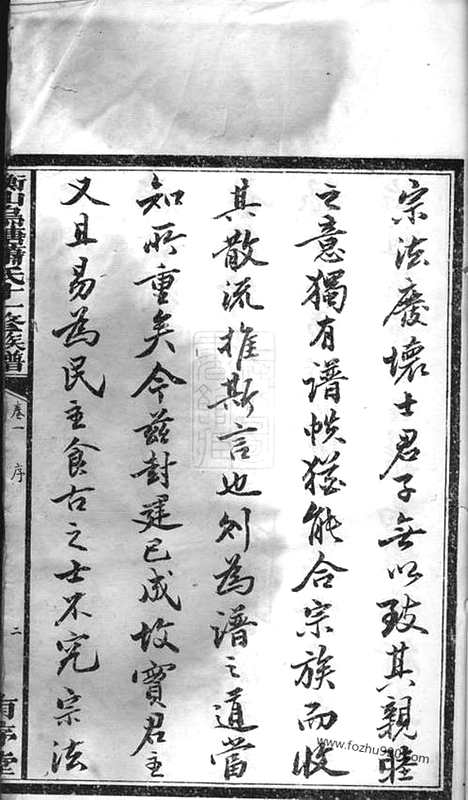 宗法廢壞士君子無以致其親睦
之意獨有譜帙猶能合宗族而收
其散流推斯言也則為譜之道當
知所重矣今茲封建已成故實君主
又且易為民主食古之士不究宗法
衡山烏塘蕭氏十一修族譜
卷一
序
二
堂
www.fozhu920.com